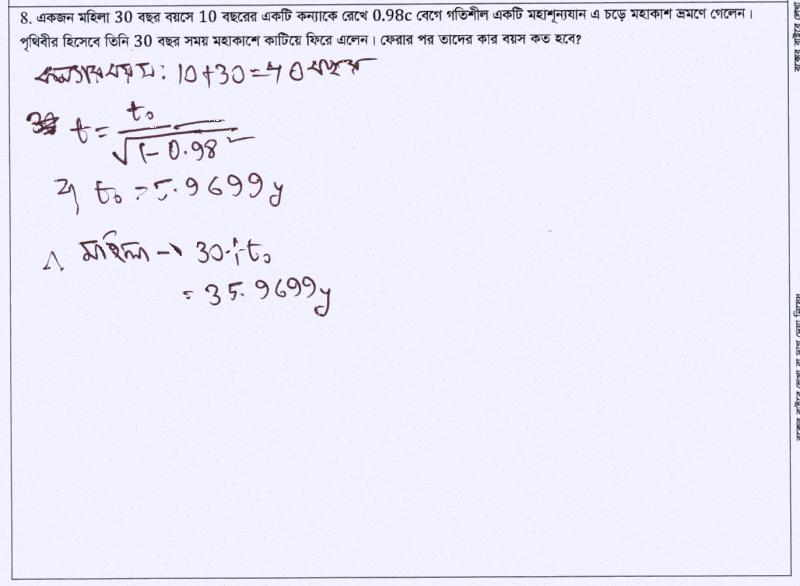 8. একজন মহিলা 30 বছর বয়সে 10 বছরের একটি কন্যাকে রেখে 0.98c বেগে গতিশীল একটি মহাশূন্যযান এ চড়ে মহাকাশ ভ্রমণে গেলেন।
পৃথিবীর হিসেবে তিনি 30 বছর সময় মহাকাশে কাটিয়ে ফিরে এলেন। ফেরার পর তাদের কার বয়স কত হবে?
কন্যার বয়স: 10+30=40 বছর
t = t₀ / √(1-0.98²)
⇒ t₀ = 5.9699y
∴ মহিলা → 30+t₀
= 35.9699y